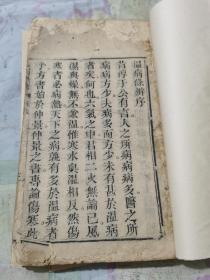 溫病條辨序
昔淳于公有言人之所病病病多醫之所
病病方少夫病多而方少未有甚於溫病
者矣何也六氣之中君相二火無論已風
濕與燥無不兼溫惟寒水與溫相反然傷
寒者必病熱天下之病孰有多於溫病者
乎方書始於仲景仲景之書專論傷寒此